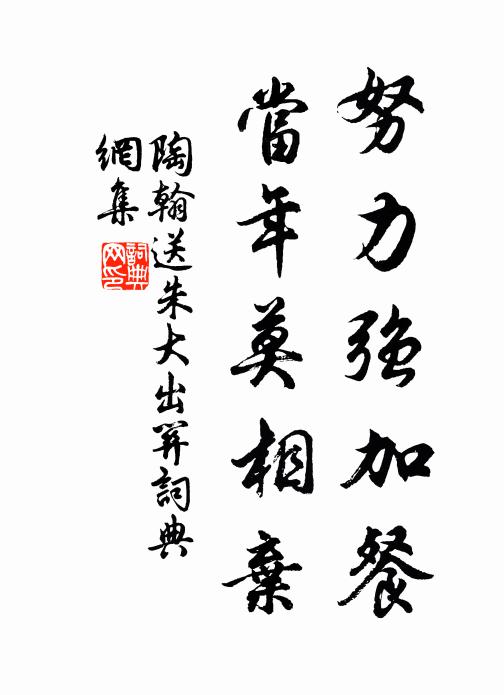 努力強加餐
當年莫相棄
陶翰送朱大出關詞典
網集
詞典
网印